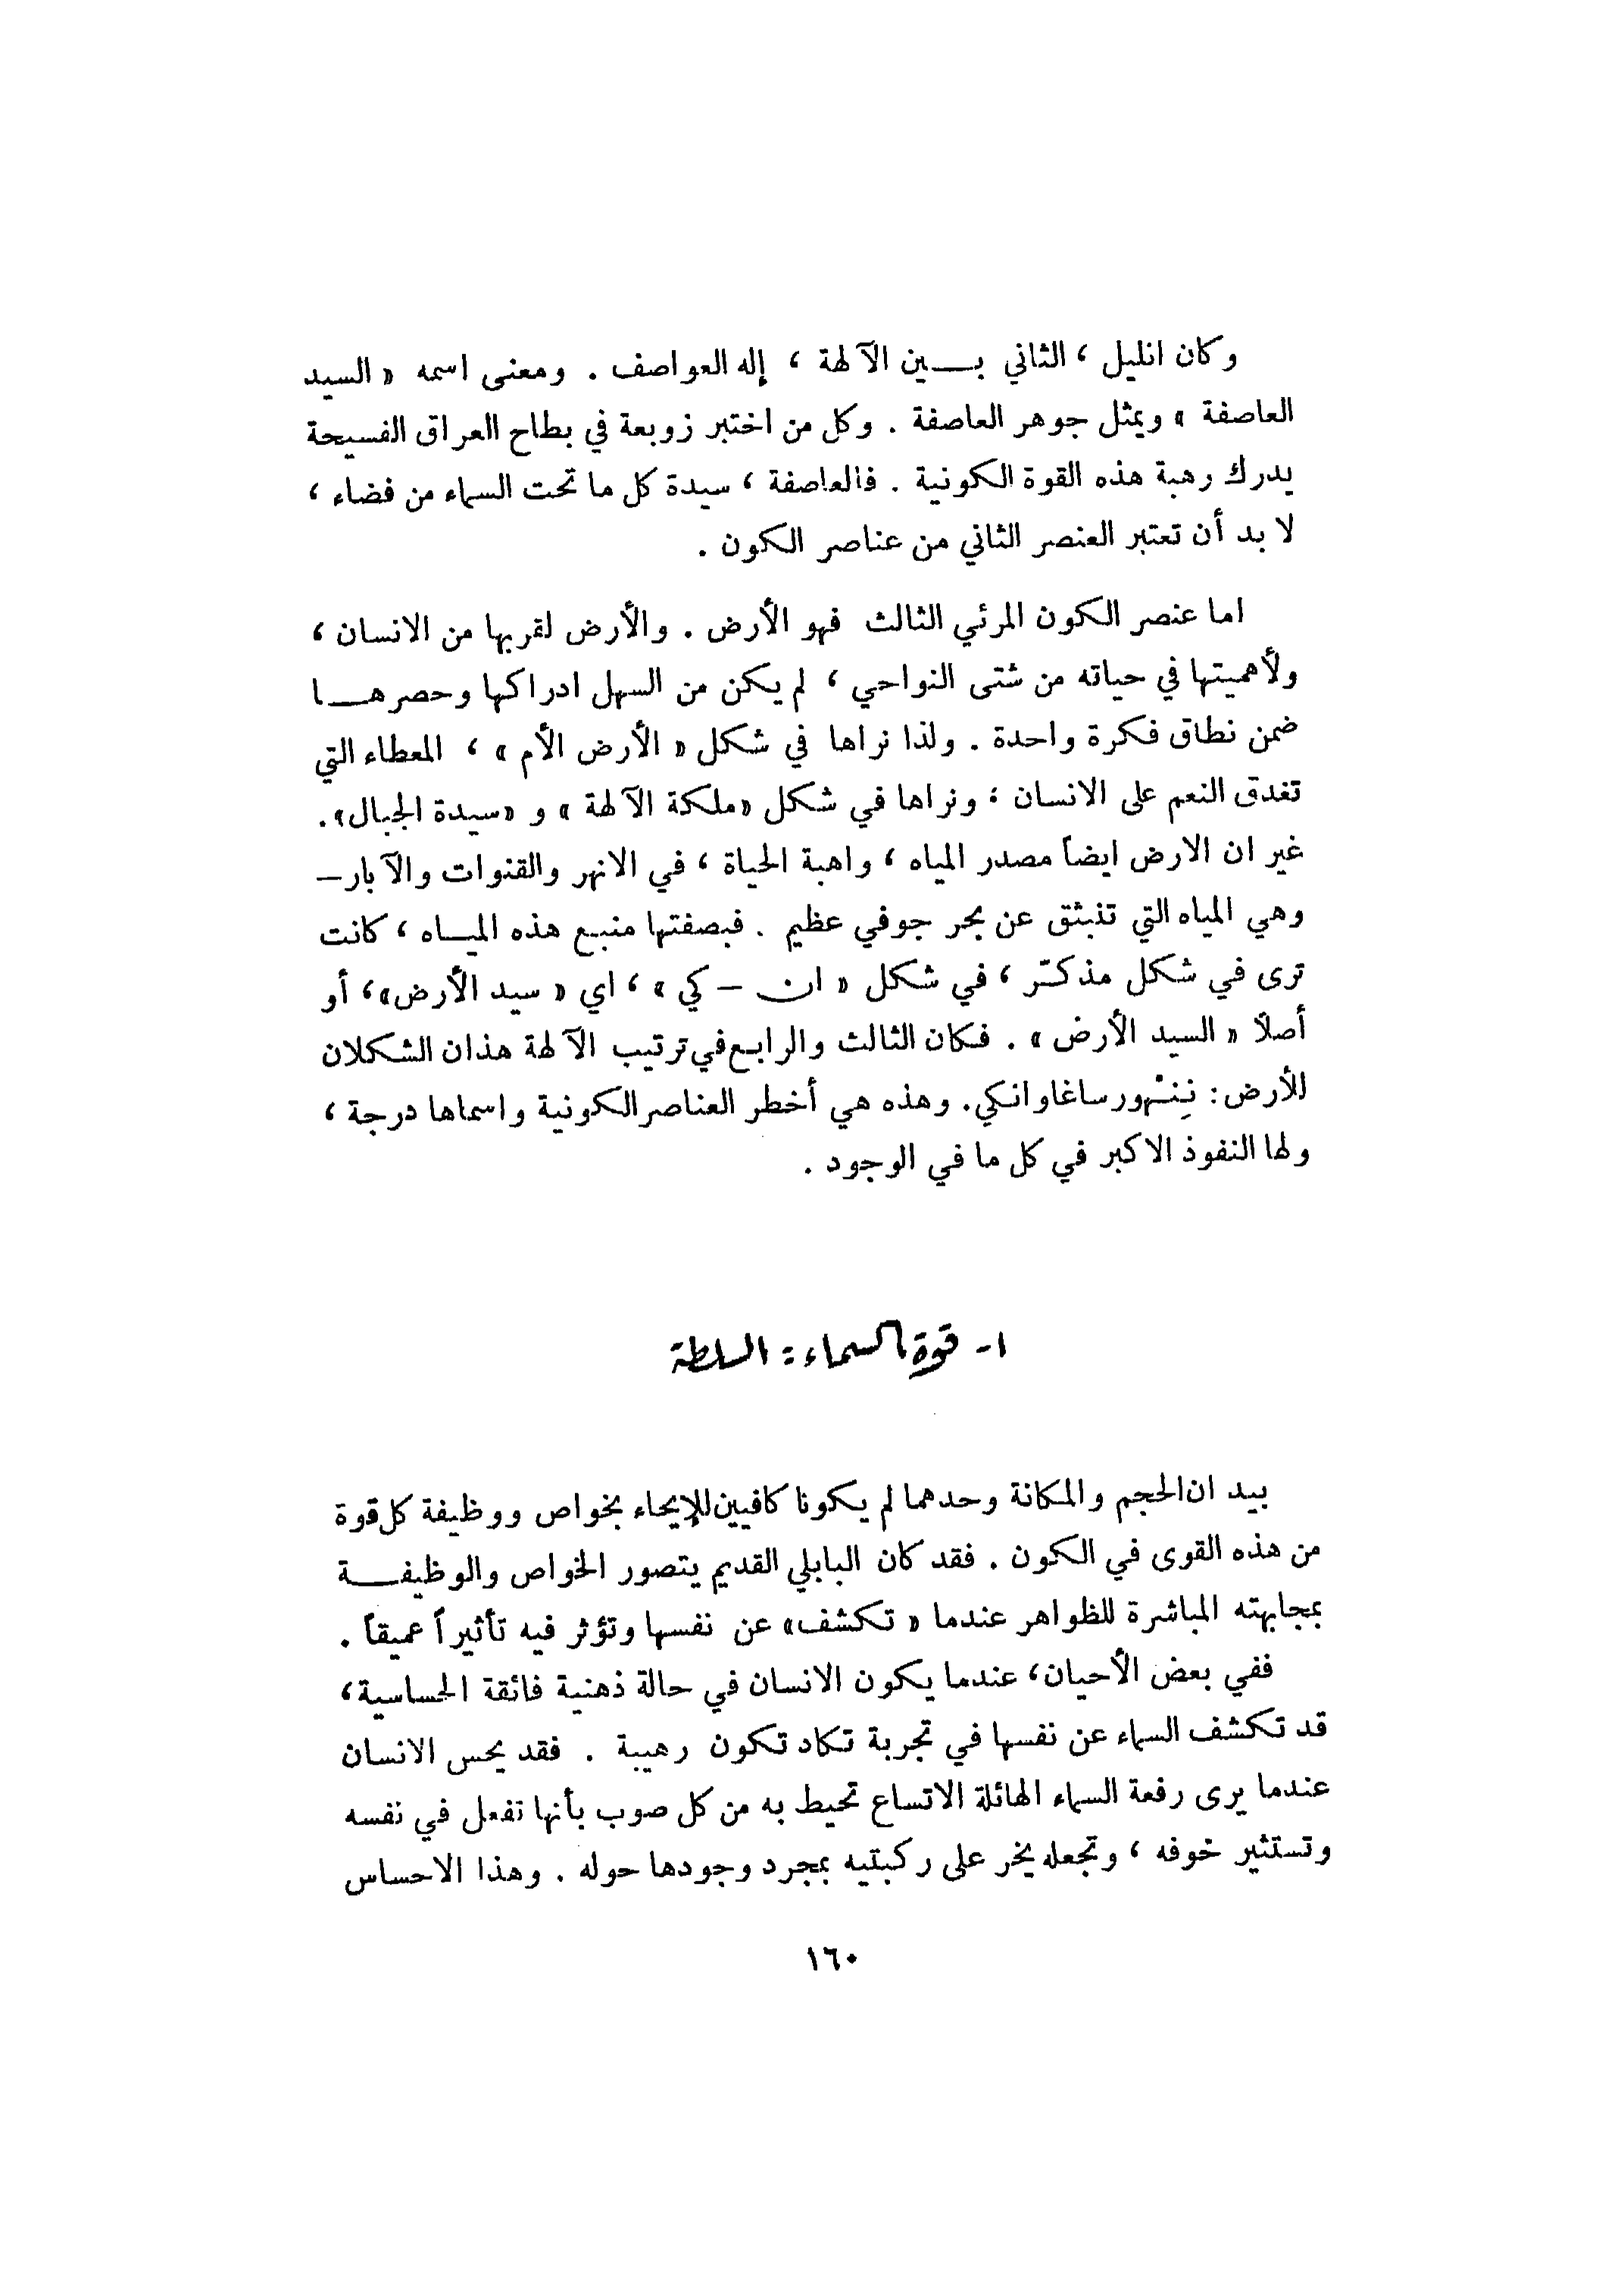 وكان انليل ، الثاني بين الآلهة ، إله العواصف . ومعنى اسمه « السيد
العاصفة » ويمثل جوهر العاصفة . وكل من اختبر زوبعة في بطاح العراق الفسيحة
يدرك رهبة هذه القوة الكونية . فالعاصفة ، سيدة كل ما تحت السماء من فضاء ،
لا بد أن تعتبر العنصر الثاني من عناصر الكون .
اما عنصر الكون المرئي الثالث فهو الأرض . والأرض لقربها من الانسان ،
ولأهميتها في حياته من شتى النواحي ، لم يكن من السهل ادراكها وحصرها
ضمن نطاق فكرة واحدة . ولذا نراها في شكل « الأرض الأم » ، المعطاء التي
تغدق النعم على الانسان ؛ ونراها في شكل «ملكة الآلهة » و «سيدة الجبال» .
غير ان الارض ايضاً مصدر المياه ، واهبة الحياة ، في الانهر والقنوات والآبار –
وهي المياه التي تنبثق عن بحر جوفي عظيم . فبصفتها منبع هذه المياه ، كانت
ترى في شكل مذكّر ، في شكل « ان – كي » ، اي « سيد الأرض» ، أو
أصلاً « السيد الأرض » . فكان الثالث والرابع في ترتيب الآلهة هذان الشكلان
للأرض : نِنْهورساغا وانكي . وهذه هي أخطر العناصر الكونية واسماها درجة ،
ولها النفوذ الاكبر في كل ما في الوجود .
١- قوة السماء : السلطة
بيد ان الحجم والمكانة وحدهما لم يكونا كافيين للإيحاء بخواص ووظيفة كل قوة
من هذه القوى في الكون . فقد كان البابلي القديم يتصور الخواص والوظيفة
بمجابهته المباشرة للظواهر عندما « تكشف» عن نفسها وتؤثر فيه تأثيراً عميقاً .
ففي بعض الأحيان ، عندما يكون الانسان في حالة ذهنية فائقة الحساسية ،
قد تكشف السماء عن نفسها في تجربة تكاد تكون رهيبة . فقد يحس الانسان
عندما يرى رفعة السماء الهائلة الاتساع تحيط به من كل صوب بأنها تفعل في نفسه
وتستثير خوفه ، وتجعله يخر على ركبتيه بمجرد وجودها حوله . وهذا الاحساس
١٦٠